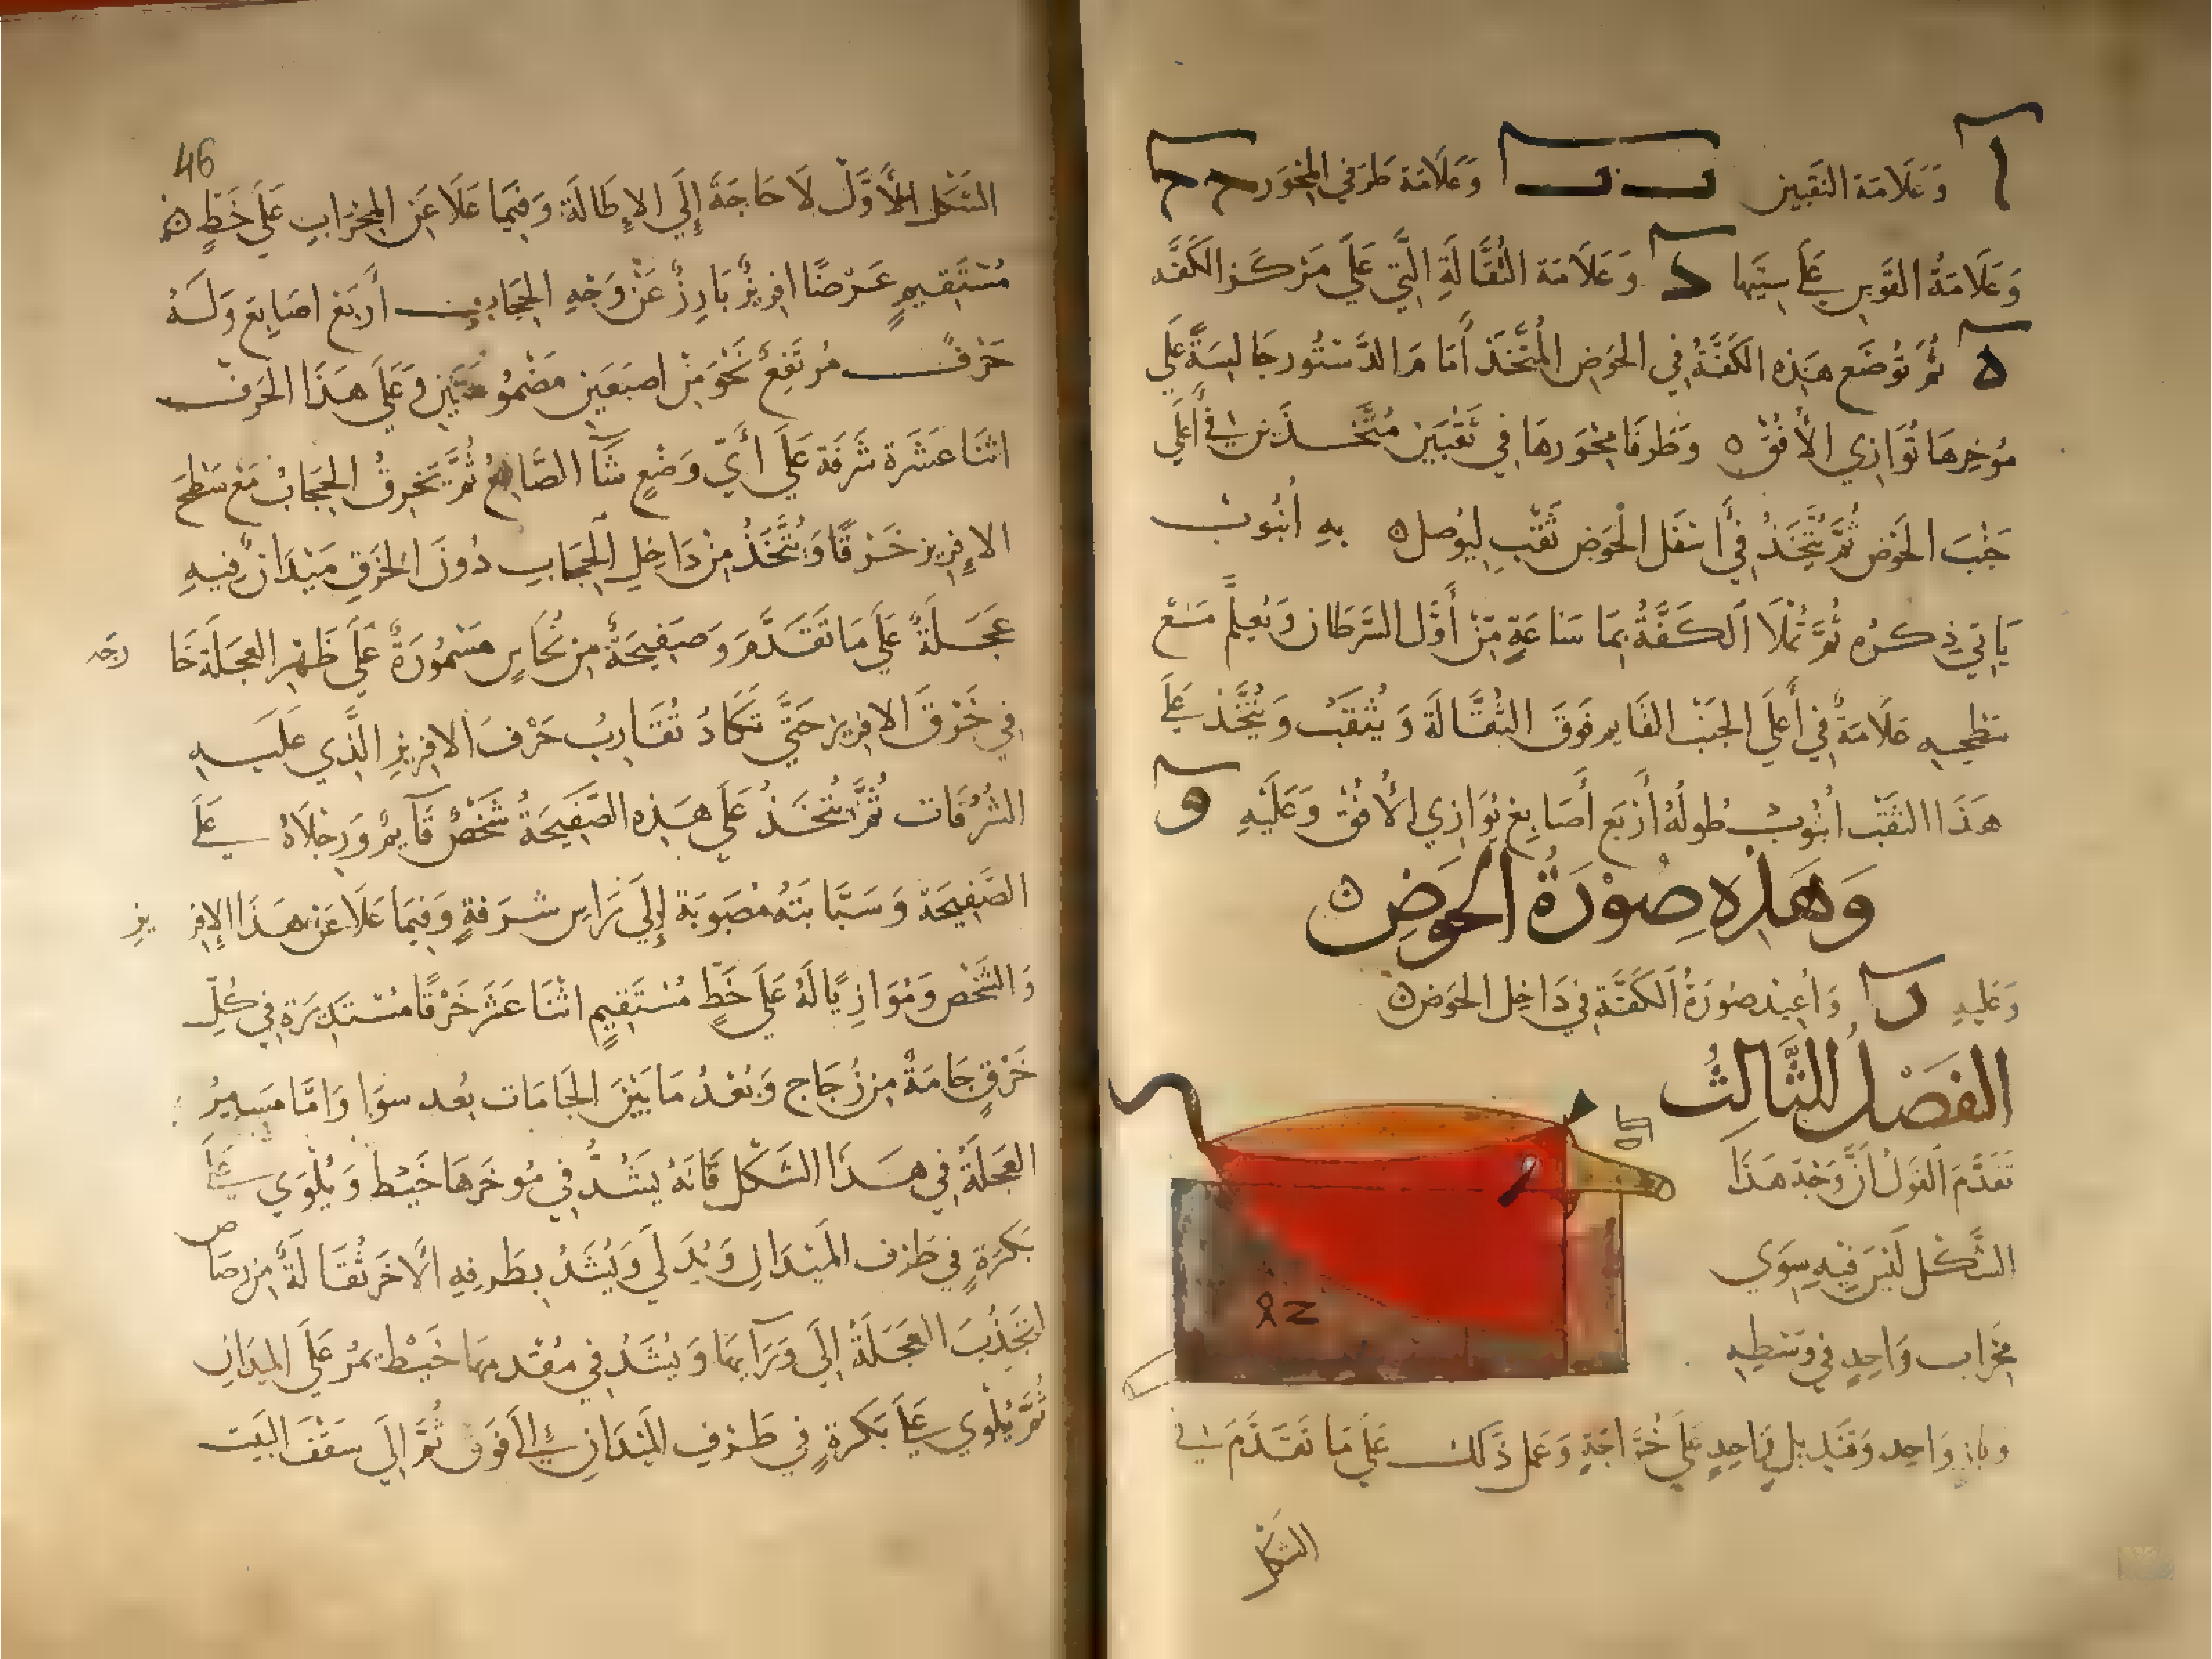 آ وَعَلَامَة الثقبين ب ب وَعَلَامَة طَرَفي المِحْوَر ح ح
وَعَلَامَةُ القَوسِ عَلَى سِيَتِهَا د وَعَلَامَة الثُقَّالَةِ الَّتِي عَلَي مَرْكَز الكَفَّه
ه ثُمَّ تُوضَع هَذِه الكَفَّةُ فِي الحَوَض المُتَّخَذ أَمَامَ الدَّسْتُور جَالِسَةً عَلَي
مُوَخِرِهَا تُوَازِي الأُفُقْ ه وَطَرفَا مِحْوَرهَا فِي ثَقْبَيَنْ مُتَّخَذَيْن فِي أَعْلَي
جَنْبَ الحَوْض ثُمَّ يُتَّخَذُ فِي أَسْفَل الْحَوَض ثَقْب لِيُوصل ه بِهِ أنْبُوبْ
يَاتِي ذِكرُه ثُمَّ تُمْلَا الكَفَّةُ بِمَا سَاعَةٍ مِنْ أَوَّل السَّرَطَان وَيُعلَّم مَعْ
سَطْحِهِ عَلَامَةٌ فِي أَعْلَي الجَنْبْ القَايِم فَوَقَ الثُقَّالَة وَيُثْقَبْ وَيُتَّخَذ عَلَى
هَذَا الثَقْب أُنْبُوبْ طُولُهُ أَرْبَع أَصَابِعْ يُوَازِي الأُفُقْ وَعَلَيْهِ و
وَهَذِه صُوْرَةُ الحَوَضِ ه
وَعَلِيهِ ر وَاُعِيدَ صُورَةُ الكَفَّةِ فِي دَاخِل الحَوض ه
الفَصْل الثَّالِثُ
تَقَدَّمَ القَولُ أَنَّ وَجْهَ هَذَا
الشَّكْل لَيْسَ فِيْهِ سِوَي
مِحْرَاب وَاحِدٍ فِي وَسَطِهِ
وبازٍ وَاحِد وَقَنْدِيل وَاحِدٍ عَلَي وَعَمل ذَلك عَلَي مَا تَقَدَّمَ فِي
الشكل
46
الشَكل الأَوَّلْ لَا حَاجَةَ إِلَي الإِطَالَة وَفِيْمَا عَلَا عَنِ المِحْرَابِ عَلَي خَطٍّ ه
مُسْتَقِيمٍ عَرْضًا افرِيْزٌ بَارِزٌ عَنْ وَجْهِ الحِجَابِ أَرْبَعْ اصَابِعْ وَلَهُ
حَرْفٌ مُرتَفِعٌ نَحْوَ مِنْ اصبَعَينِ مَضْمُومَتَيْنِ وَعَلَي هَذَا الحَرفْ
اثنَا عَشَرَة شَرَفَة عَلَي أَيّ وَضْعٍ شَآ الصَّانِعُ ثُمَّ يُخرقُ الحِجَابُ مَعْ سَطْحَ
الاِفرِيز خَرْقًا وَيُتَّخَذُ مِنْ دَاخِل الحِجَابِ دُونَ الخَرَقِ مَيْدَانٌ فِيهِ
عَجَلَةٌ عَلَي مَا تَقَدَّمَ وَصَفِيحَةٌ مِنْ نُحَاسٍ مَسْمُورَةٌ عَلَي ظَهْرِ العَجَلَة خَارجَه
فِي خَرْقَ الافريز حَتَّي تَكَادَ تُقَاربُ حَرْفَ الافرِيزِ الَّذِي عَلَيه
الشُرُفَات ثُمَّ يُتَّخَذُ عَلَي هَذِهِ الصَّفِيحَةُ شَخْصٌ قَآيِمٌ وَرِجْلَاهُ عَلَى
الصَفِيحَة وَسَبَّابَتَهُ مَصْوبَة إِلَي رَاسِ شَرَفَةٍ وَفِيْمَا عَلَا عَن هَذَا الإفريز
وَالشَخْص وَمُوَازِيًا لَهُ عَلَي خَطٍّ مُسْتَقِيمٍ اثْنَا عَشَر خَرْقًا مُسْتَدِيرَة فِي كُلِّ
خَرْقٍ جَامَةٌ مِن زُجَاج وَبُعْدُ مَا بَيْنَ الجَامَات بُعد سوَا وَامَّا مَسِيرُ
العَجَلَةُ فِي هَذَا الشَكل فَانَهُ يُشَدُّ فِي مُوخَرهَا خَيْط وَيُلْوَي عَلَى
بَكَرَةٍ فِي طَرف المَيْدَانِ وَيُدَلَي وَيُشَدُ بِطَرفِهِ الأَخَر ثُقَّالَةٌ مِن رصَاص
لِتجْذُبَ العَجَلَةُ إِلَي وَرَآيهَا وَيُشَدُّ فِي مُقَدمِهَا خَيْط يَمُر عَلَي المَيدَانِ
ثُمَّ يُلْوي عَلَى بَكَرَةٍ فِي طَرَفِ المَيْدَانِ فَوَق ثُمَّ إِلَي سَقْفَ البَيْت